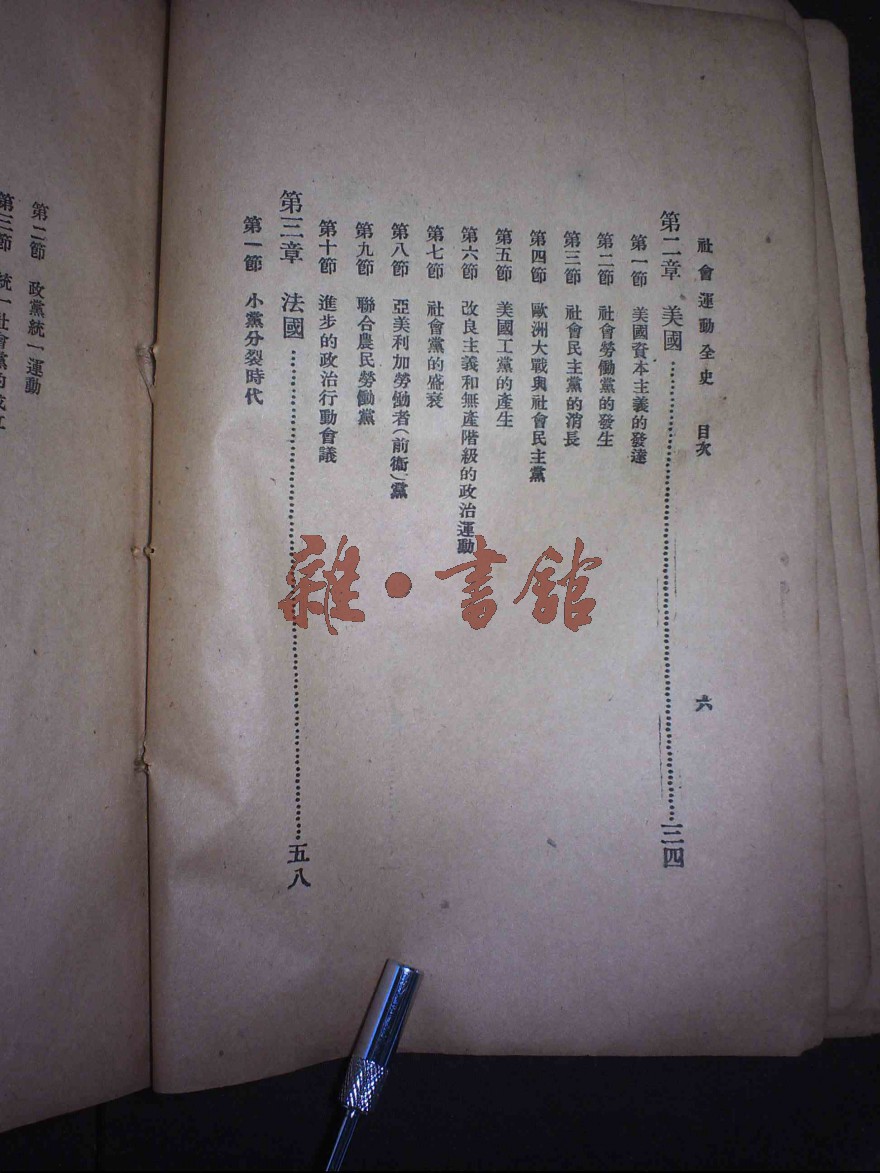 社會運動全史 目次 六
第二章 美國……三四
第一節 美國資本主義的發達
第二節 社會勞働黨的發生
第三節 社會民主黨的消長
第四節 歐洲大戰與社會民主黨
第五節 美國工黨的產生
第六節 改良主義和無產階級的政治運動
第七節 社會黨的盛衰
第八節 亞美利加勞働者(前衛)黨
第九節 聯合農民勞働黨
第十節 進步的政治行動會議
第三章 法國……五八
第一節 小黨分裂時代
第二節 政黨統一運動
第三節 統一社會黨的成立
雜·書館